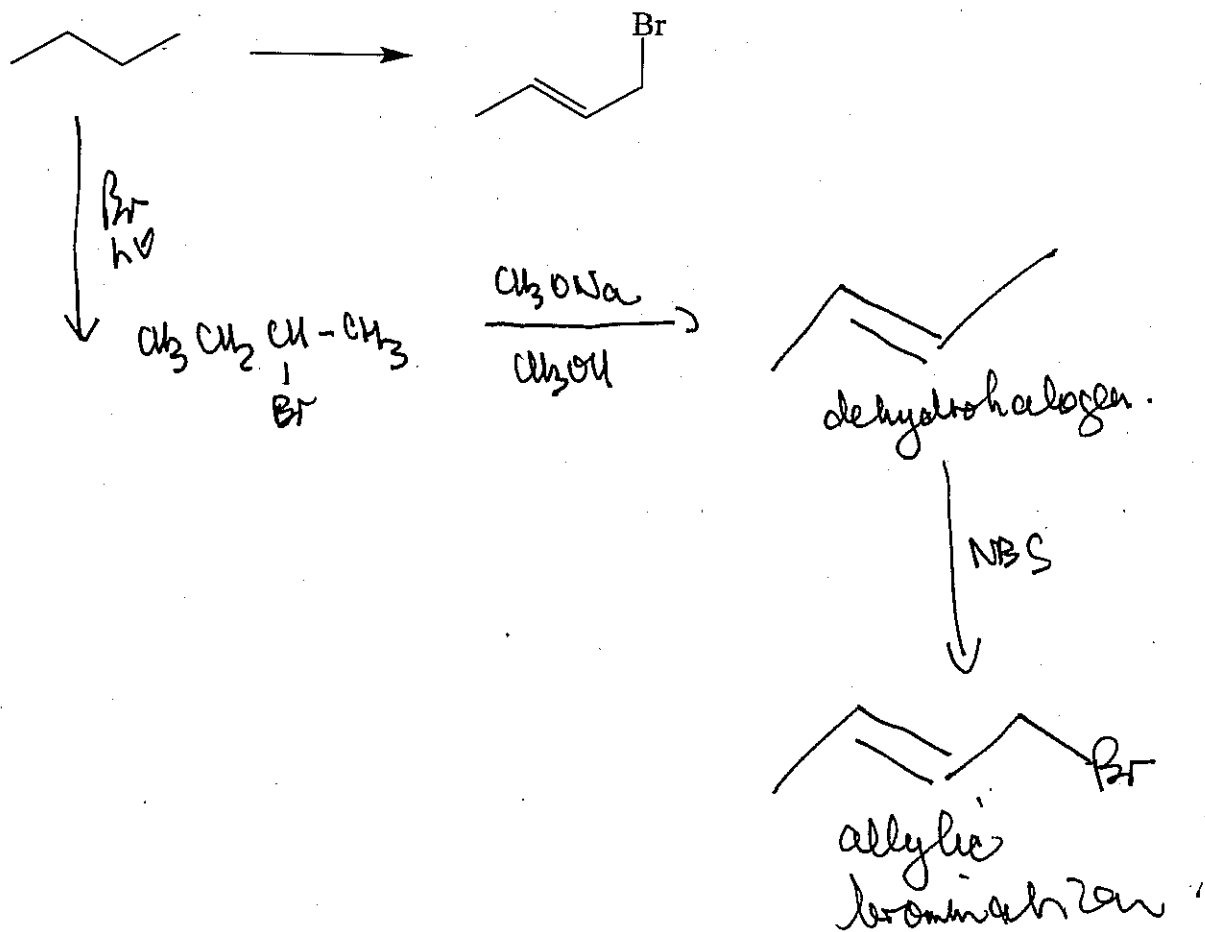 Br
Br
hν
CH3CH2CH-CH3
Br
CH3ONa
CH3OH
dehydrohalogen.
NBS
Br
allylic
bromination